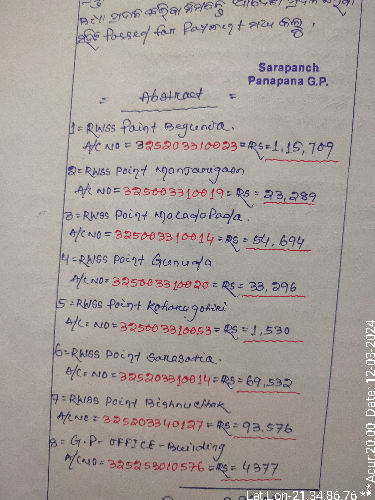 Passed for Payment
Sarapanch
Panapana G.P.
= Abstract =
1= RWSS Point Begunia.
A/C NO = 325203310023 = RS = 1,15,709
2= RWSS Point Mansarugaon
A/C NO = 325003310019 = RS = 23,289
3 = RWSS Point Maladapada.
A/C NO = 325003310014 = RS = 54,694
4 = RWSS Point Gunuda
A/C NO = 325003310020 = RS = 33,296
5 = RWSS Point
A/C = NO = 325003310053 = RS = 1,530
6 = RWSS Point Sarasatia.
A/C = NO = 325203310014 = RS = 69,532
7 = RWSS Point Bishnuchhak
A/C NO = 325203340127 = RS = 93,576
8 = G.P- OFFICE- Building
A/C NO = 325253010576 = RS = 4377
Lat Lon-21.34,86.76 ***Acur,20.00, Date, 12-03-2024